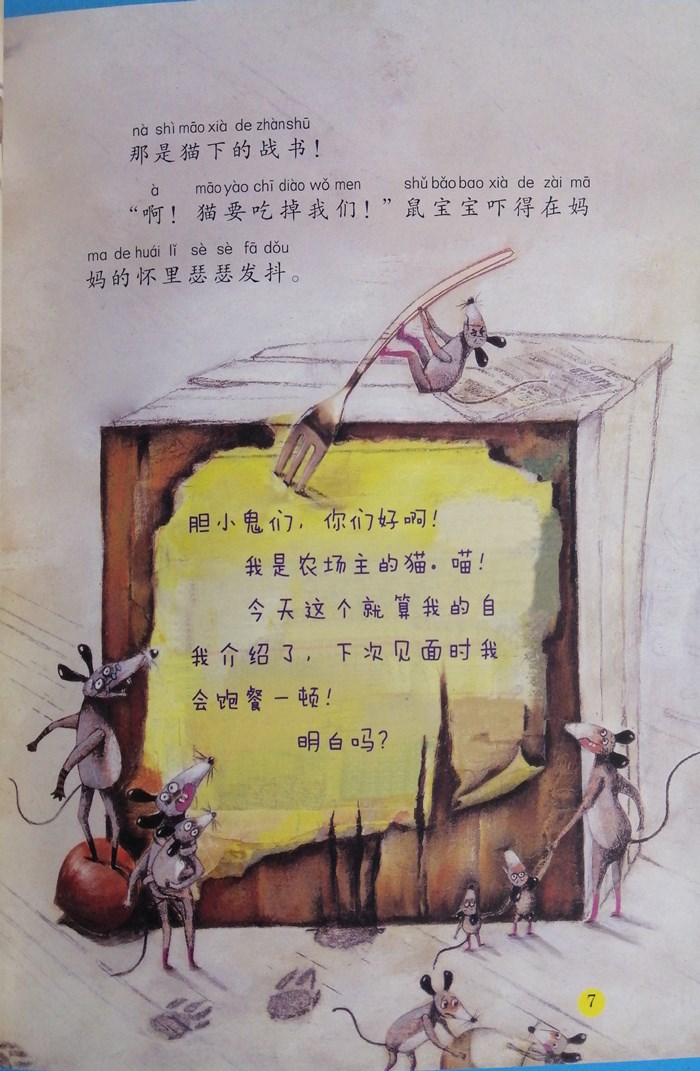 nà shì māo xià de zhànshū
那是猫下的战书！
à māo yào chī diào wǒ men shǔ bǎo bao xià de zài mā
“啊！猫要吃掉我们！”鼠宝宝吓得在妈
ma de huái lǐ sè sè fā dǒu
妈的怀里瑟瑟发抖。
胆小鬼们，你们好啊！
我是农场主的猫。喵！
今天这个就算我的自
我介绍了，下次见面时我
会饱餐一顿！
明白吗？
7